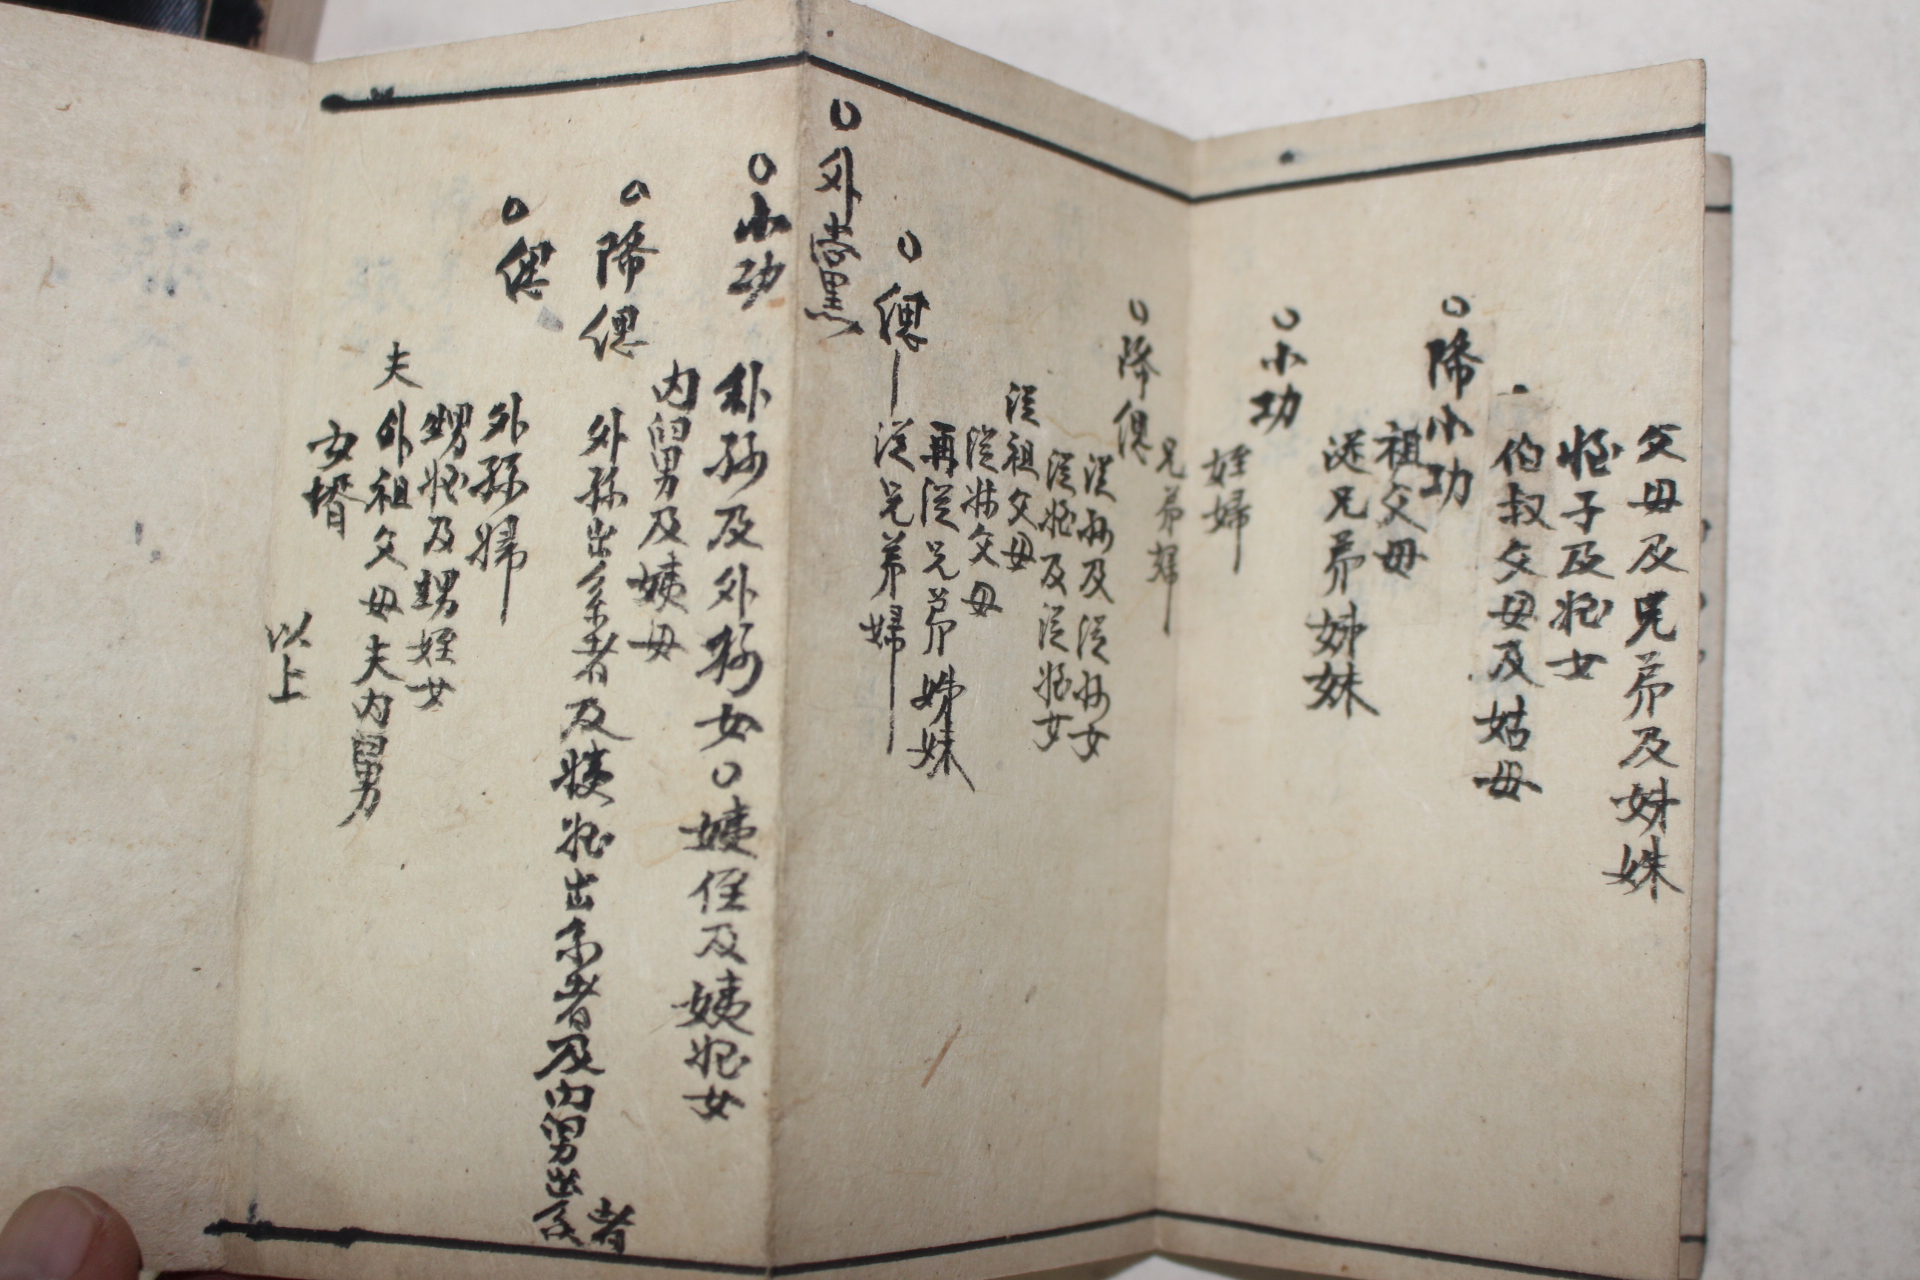 父母及兄弟及姉妹
姪子及姪女
伯叔父母及姑母
○降小功
祖父母
從兄弟姉妹
○小功
姪婦
兄弟婦
○降偲
從孫及從孫女
從姪及從姪女
從祖父母
從叔父母
再從兄弟姉妹
○偲
從兄弟婦
○外黨
○小功
外孫及外孫女○姨侄及姨姪女
內舅及姨母
○降偲
外孫出系者及姨姪出系者及內舅出系者
○偲
外孫婦
甥姪及甥姪女
夫外祖父母夫內舅
女壻
以上